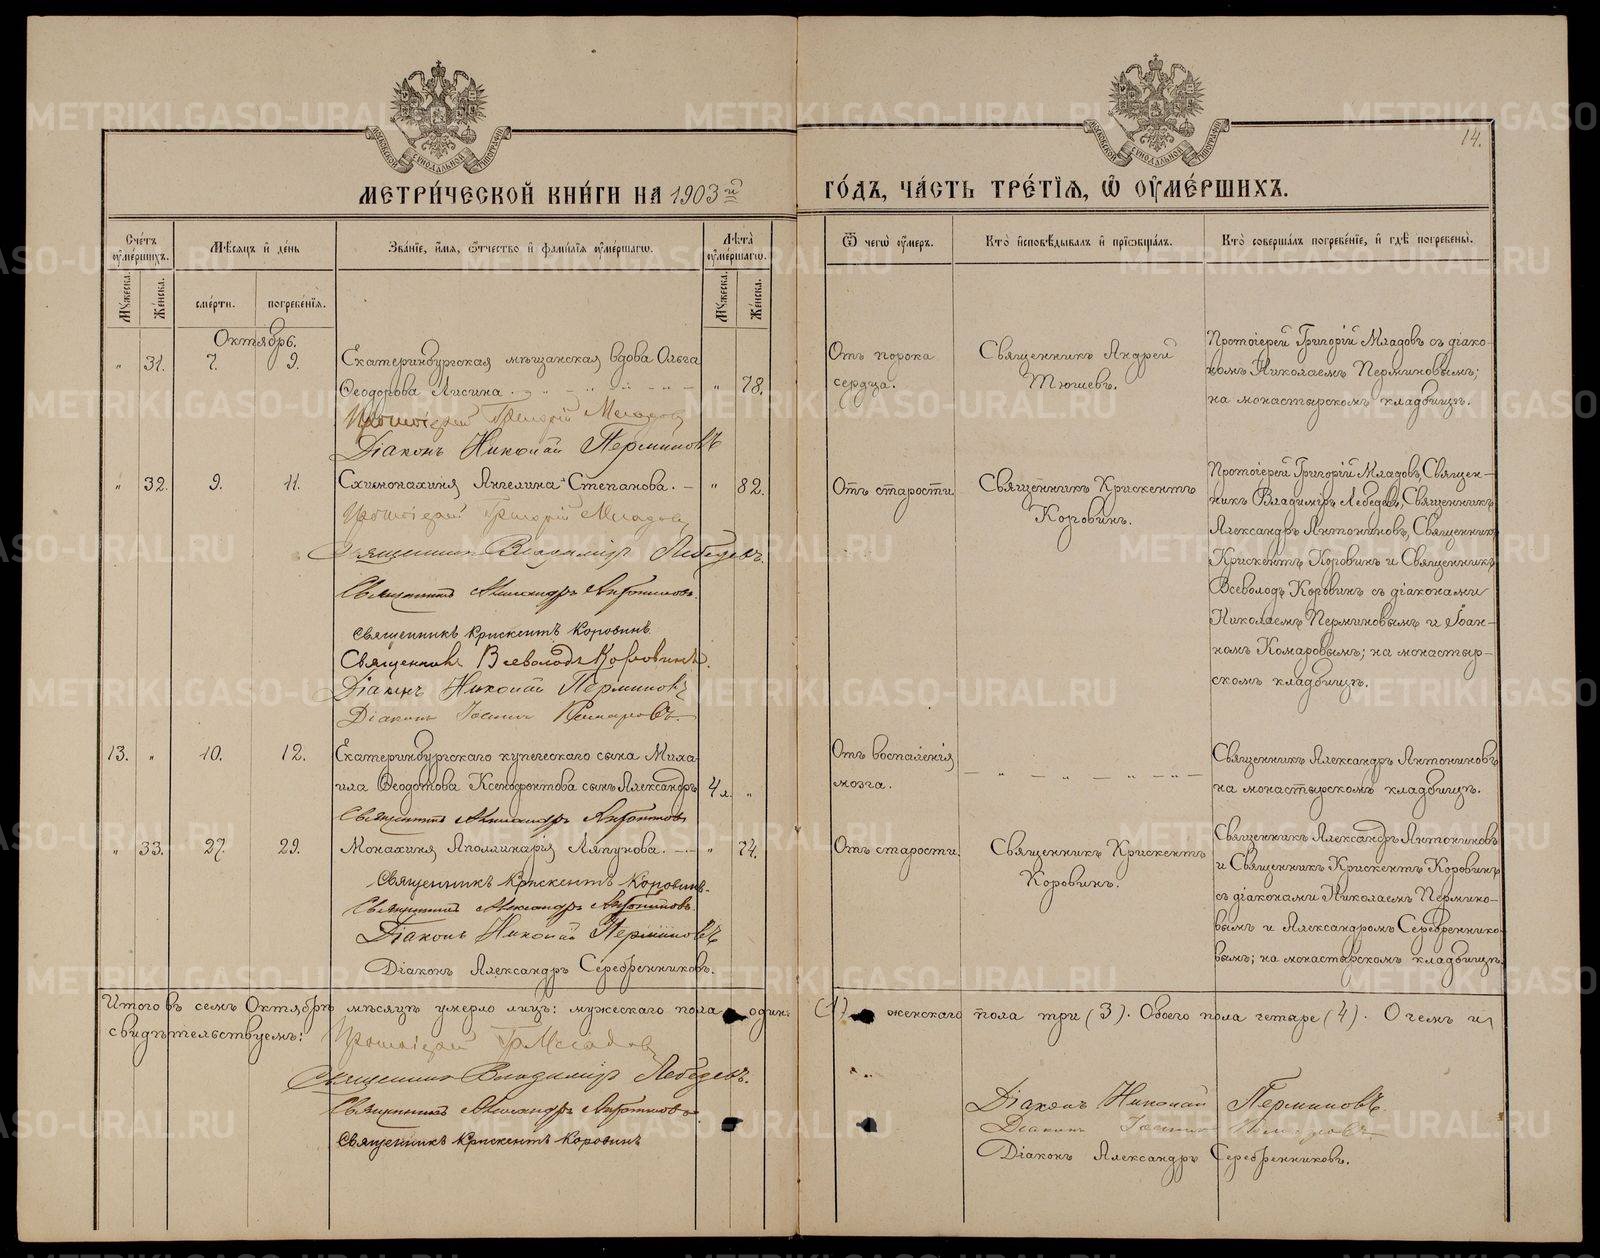 МОСКОВСКОЙ СИНОДАЛЬНОЙ ТИПОГРАФІИ
МОСКОВСКОЙ СИНОДАЛЬНОЙ ТИПОГРАФІИ
14.
МЕТРИ́ЧЕСКОЙ КНИ́ГИ НА 1903й
ГО́ДЪ, ЧА́СТЬ ТРЕ́ТІѦ, Ѿ ОУМЕ́РШИХЪ.
Сче́тъ оуме́ршихъ.
Мѣсѧцъ и де́нь
Зва́ніе, и́мѧ, ѻ́тчество и фами́ліѧ оуме́ршагѡ.
Лѣта̀ оуме́ршагѡ.
Ѿ чегѡ̀ оу́меръ.
Кто̀ исповѣ́дывалъ и приѡбща́лъ.
Кто̀ соверша́лъ погребе́ніе, и гдѣ̀ погребены̀.
Му́жеска.
Же́нска.
сме́рти.
погребе́нїѧ.
Му́жеска.
Же́нска.
Октябрь.
„ 31. 7. 9.
Екатеринбургская мѣщанская вдова Ольга
Ѳеодорова Лисина. „ 78.
Протоіерей Григорій Младовъ
Діаконъ Николай Перминовъ
Отъ порока
сердца.
Священникъ Андрей
Тюшевъ.
Протоіерей Григорій Младовъ съ діако-
номъ Николаемъ Перминовымъ;
на монастырскомъ кладбищѣ.
„ 32. 9. 11.
Схимонахиня Ангелина Степанова. „ 82.
Протоіерей Григорій Младовъ
Священникъ Владиміръ Лебедевъ.
Священникъ Александръ Антониновъ.
Священникъ Крискентъ Коровинъ.
Священникъ Всеволодъ Коровинъ.
Діаконъ Николай Перминовъ
Діаконъ Іоаннъ Комаровъ.
Отъ старости
Священникъ Крискентъ
Коровинъ.
Протоіерей Григорій Младовъ, Священ-
никъ Владиміръ Лебедевъ, Священникъ
Александръ Антониновъ, Священникъ
Крискентъ Коровинъ и Священникъ
Всеволодъ Коровинъ съ діаконами
Николаемъ Перминовымъ и Іоан-
номъ Комаровымъ; на монастыр-
скомъ кладбищѣ.
13. „ 10. 12.
Екатеринбургскаго купеческаго сына Миха-
ила Ѳеодотова Ксенофонтова сынъ Александръ 4 л. „
Священникъ Александръ Антониновъ
Отъ воспаленія
мозга.
Священникъ Александръ Антониновъ
на монастырскомъ кладбищѣ.
„ 33. 27. 29.
Монахиня Аполлинарія Ляпунова. „ 74.
Священникъ Крискентъ Коровинъ.
Священникъ Александръ Антониновъ.
Діаконъ Николай Перминовъ
Діаконъ Александръ Серебренниковъ.
Отъ старости.
Священникъ Крискентъ
Коровинъ.
Священникъ Александръ Антониновъ
и Священникъ Крискентъ Коровинъ
съ діаконами Николаемъ Пермино-
вымъ и Александромъ Серебреннико-
вымъ; на монастырскомъ кладбищѣ.
Итого въ семъ Октябрѣ мѣсяцѣ умерло лицъ: мужескаго пола один (1) женскаго пола три (3). Обоего пола четыре (4). О чемъ и
свидѣтельствуемъ:
Протоіерей Гр. Младовъ
Священникъ Владиміръ Лебедевъ.
Священникъ Александръ Антониновъ
Священникъ Крискентъ Коровинъ
Діаконъ Николай Перминовъ.
Діаконъ Іоаннъ Комаровъ
Діаконъ Александръ Серебренниковъ.
METRIKI.GASO-URAL.RU